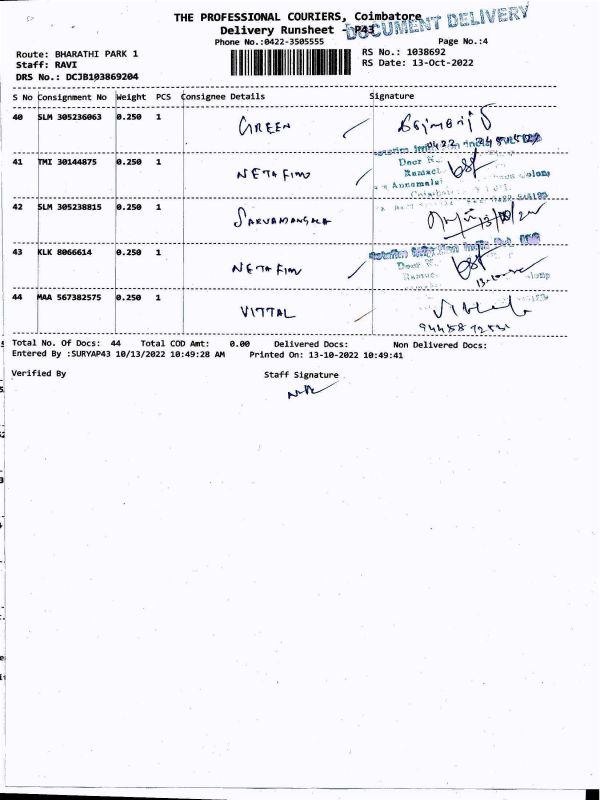 THE PROFESSIONAL COURIERS, Coimbatore
Delivery Runsheet - P43
DOCUMENT DELIVERY
Phone No.:0422-3505555
Page No.:4
Route: BHARATHI PARK 1
RS No.: 1038692
Staff: RAVI
RS Date: 13-Oct-2022
DRS No.: DCJB103869204
S No Consignment No Weight PCS Consignee Details Signature
40 SLM 305236063 0.250 1 GREEN
41 TMI 30144875 0.250 1 NETAFIM
42 SLM 305238815 0.250 1 SARVAMANGALA
43 KLK 8066614 0.250 1 NETAFIM
44 MAA 567382575 0.250 1 VITTAL
Total No. Of Docs: 44 Total COD Amt: 0.00 Delivered Docs: Non Delivered Docs:
Entered By :SURYAP43 10/13/2022 10:49:28 AM Printed On: 13-10-2022 10:49:41
Verified By Staff Signature